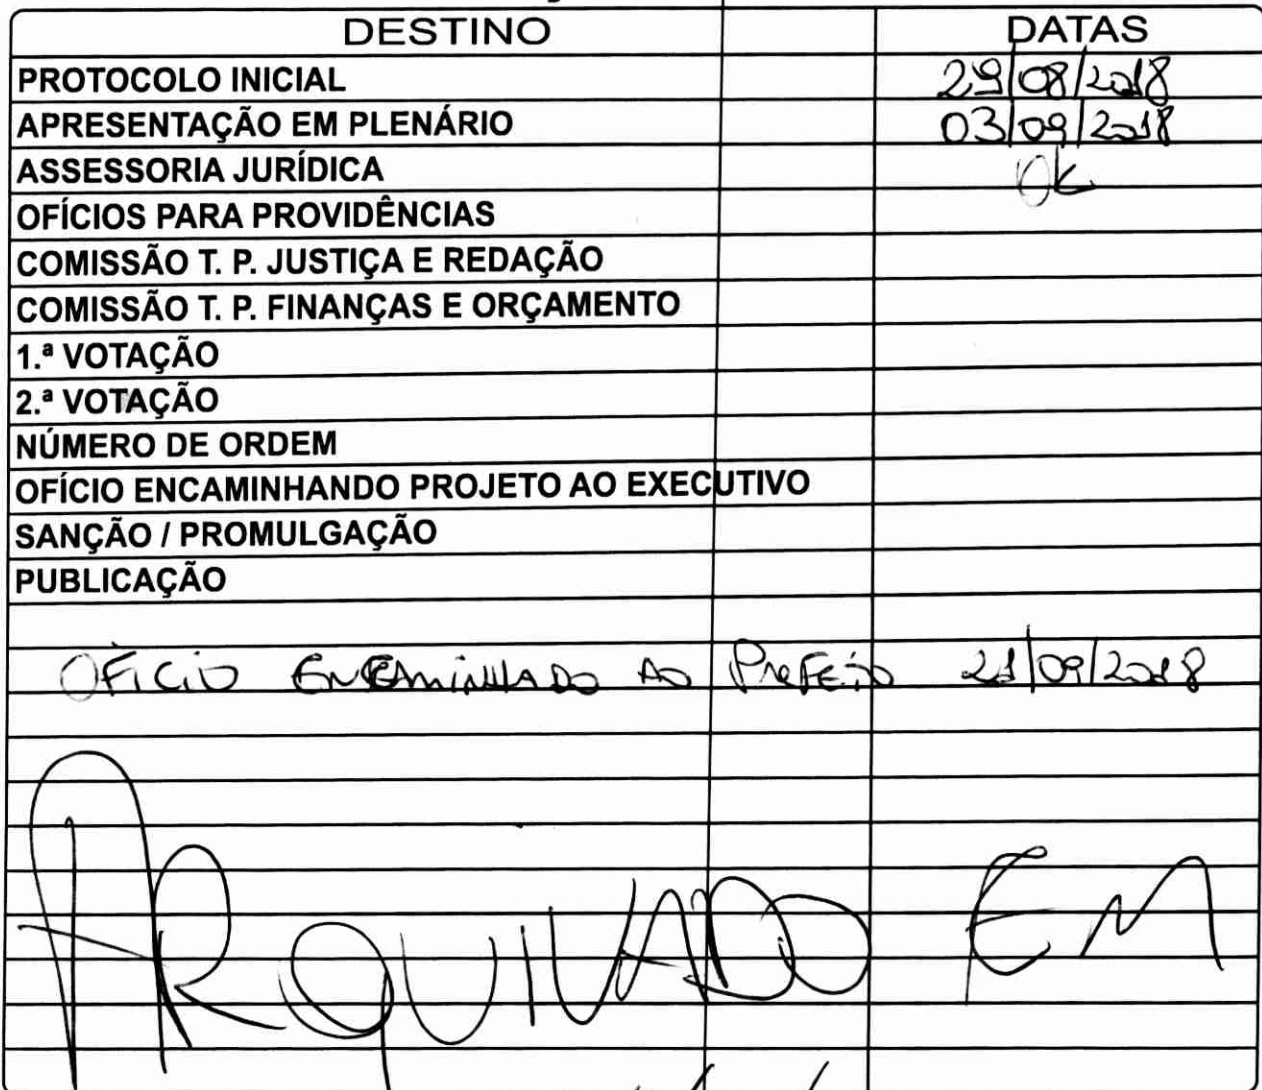 DESTINO DATAS
PROTOCOLO INICIAL 29/08/2018
APRESENTAÇÃO EM PLENÁRIO 03/09/2018
ASSESSORIA JURÍDICA OK
OFÍCIOS PARA PROVIDÊNCIAS
COMISSÃO T. P. JUSTIÇA E REDAÇÃO
COMISSÃO T. P. FINANÇAS E ORÇAMENTO
1.ª VOTAÇÃO
2.ª VOTAÇÃO
NÚMERO DE ORDEM
OFÍCIO ENCAMINHANDO PROJETO AO EXECUTIVO
SANÇÃO / PROMULGAÇÃO
PUBLICAÇÃO
OFÍCIO ENCAMINHADO AO PREFEITO 21/09/2018
ARQUIVADO EM